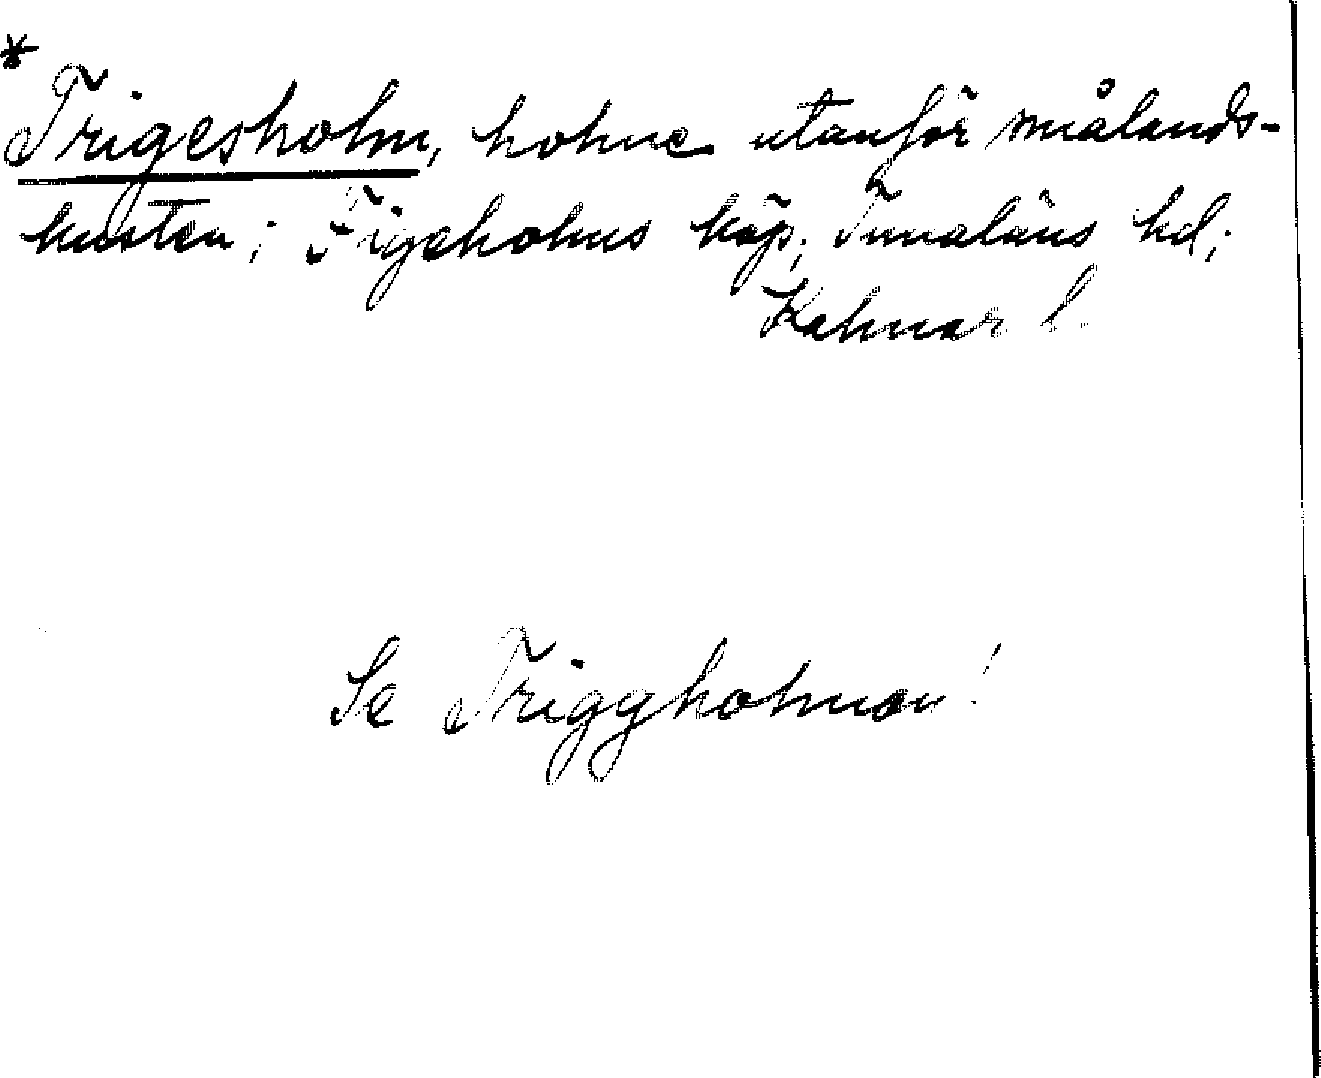 *
Trigesholm, holme utanför smålands-
kusten; Figeholms köp; Tunaläns hd;
Kalmar l.
Se Triggholmen!